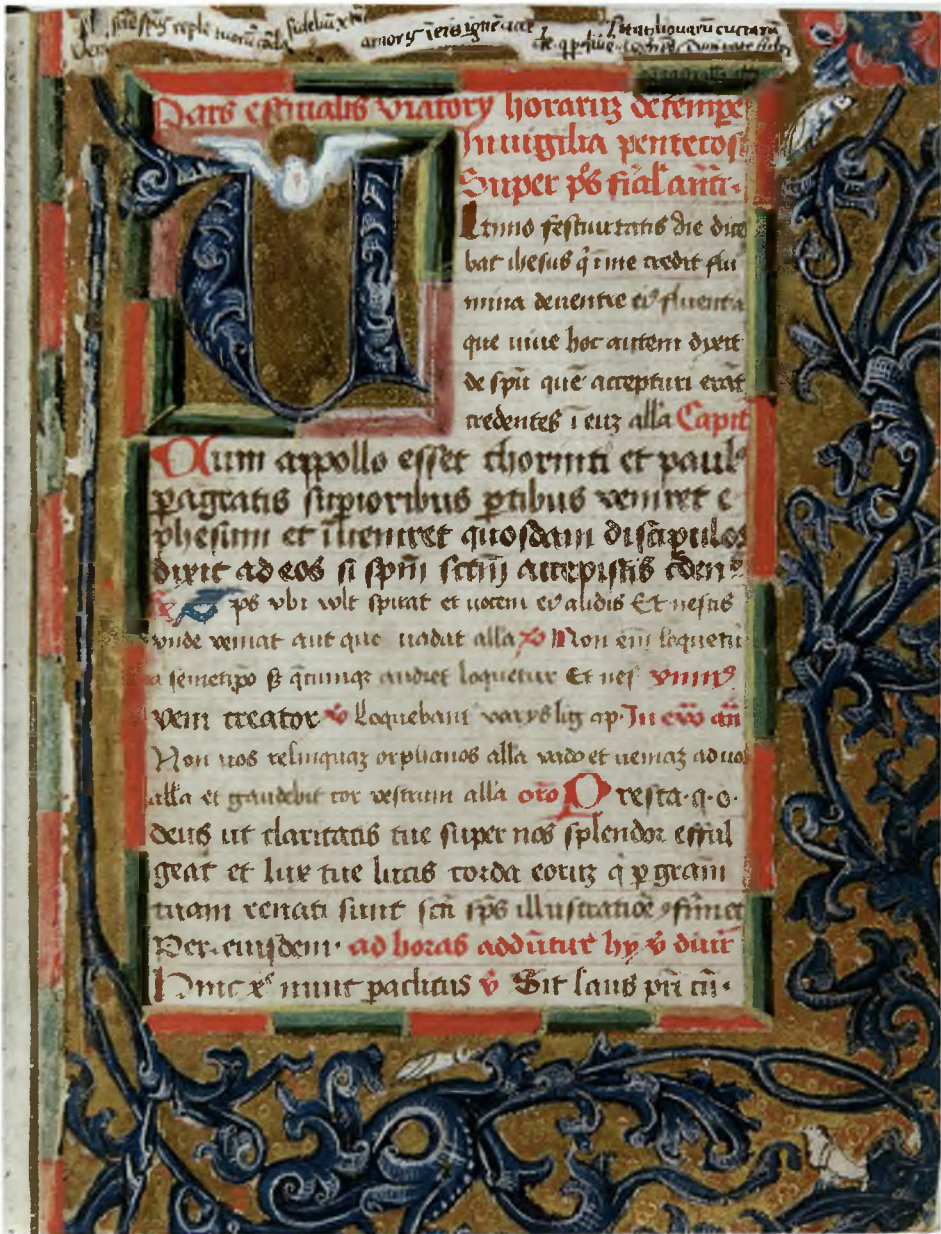 sctẽ spũs reple tuorũ corda fidelium
amorꝭ ĩ eis ignẽ
Pars estiualis viatorꝭ horaruʒ de tempe
In uigilia pentecos
Super p̃s fi͠al añti·
Ltimo festiuitatis die dice
bat ihesus q̃ ĩ me credit flu
mina de uentre eiꝰ fluent a
que uiue hoc autem dixit
de sp̃u quẽ accepturi erãt
credentes ĩ euʒ alla Capit
Cum appollo esset chorinti et paulꝰ
ꝑagratis supioribus ꝑtibus veniret e
phesum et ĩueniret quosdam discipulos
dixit ad eos si sp̃m sctm̃ accepistis c̃den
sp̃s vbi vult spirat et uocem eiꝰ audis Et nescis
vnde veniat aut quo uadat alla ꝟ Non eni͠ loquetu
a semetip̃o sꝫ q̃cumqꝫ audiet loquetur Et nes ymnꝰ
Veni creator ꝟ Loquebant̃ varys lig ap· In eũo añ
Non uos relinquaʒ orphanos alla vado et ueniaʒ ad uo
alla et gaudebit cor vestrum alla or̃o Presta·q·o·
deus ut claritatis tue super nos splendor efful
geat et lux tue lucis corda eoruʒ q̃ ꝑ gr̃am
tuam renati sunt sc̃i sp̃s illustratiõe ꝯfirmet
Per·eiusdem· ad horas addũtur hy ꝟ diuit
Hinc xp̃s nunc paclitus ꝟ Sit laus pr̃i cũ·